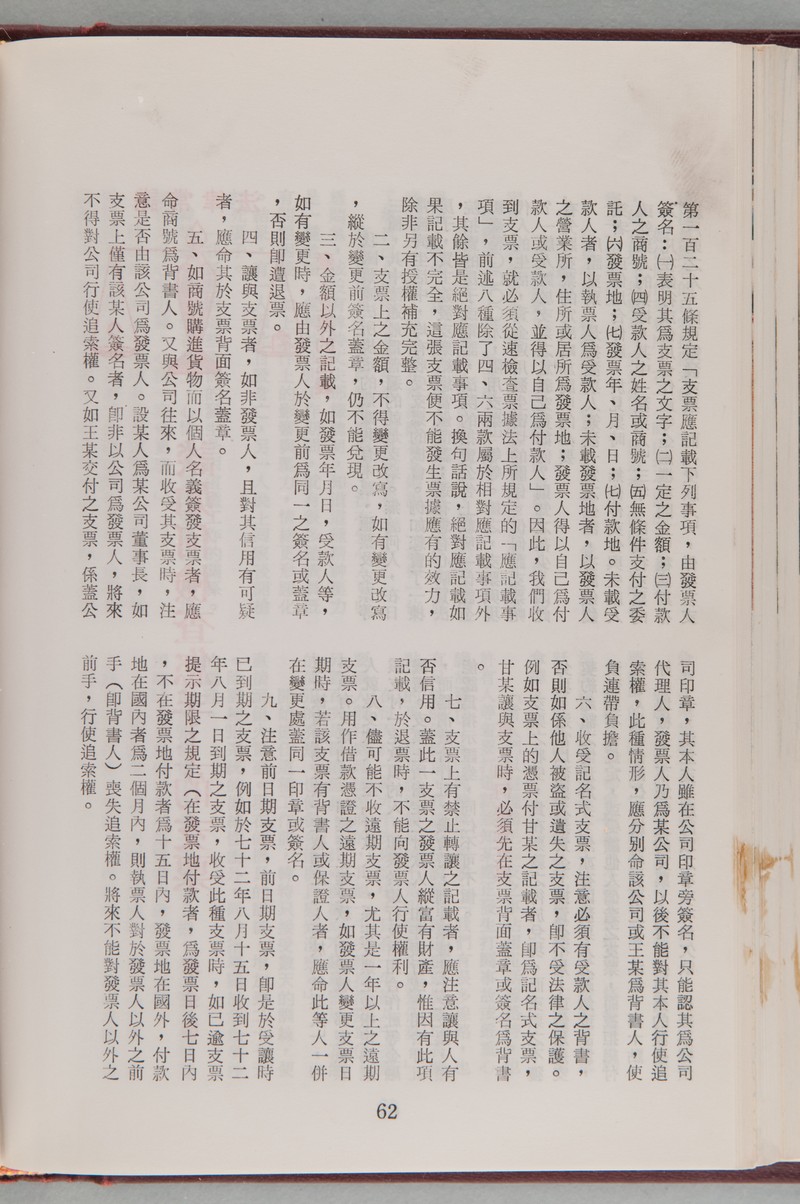 第一百二十五條規定「支票應記載下列事項，由發票人
簽名：㈠表明其爲支票之文字；㈡一定之金額；㈢付款
人之商號；㈣受款人之姓名或商號；㈤無條件支付之委
託；㈥發票地；㈦發票年、月、日；㈦付款地。未載受
款人者，以執票人爲受款人；未載發票地者，以發票人
之營業所，住所或居所爲發票地；發票人得以自己爲付
款人或受款人，並得以自己爲付款人」。因此，我們收
到支票，就必須從速檢查票據法上所規定的「應記載事
項」，前述八種除了四、六兩款屬於相對應記載事項外
，其餘皆是絕對應記載事項。換句話說，絕對應記載如
果記載不完全，這張支票便不能發生票據應有的效力，
除非另有授權補充完整。
二、支票上之金額，不得變更改寫，如有變更改寫
，縱於變更前簽名蓋章，仍不能兌現。
三、金額以外之記載，如發票年月日，受款人等，
如有變更時，應由發票人於變更前爲同一之簽名或蓋章
，否則卽遭退票。
四、讓與支票者，如非發票人，且對其信用有可疑
者，應命其於支票背面簽名蓋章。
五、如商號購進貨物而以個人名義簽發支票者，應
命商號爲背書人。又與公司往來，而收受其支票時，注
意是否由該公司爲發票人。設某人爲某公司董事長，如
支票上僅有該某人簽名者，卽非以公司爲發票人，將來
不得對公司行使追索權。又如王某交付之支票，係蓋公
司印章，其本人雖在公司印章旁簽名，只能認其爲公司
代理人，發票人乃爲某公司，以後不能對其本人行使追
索權，此種情形，應分別命該公司或王某爲背書人，使
負連帶負擔。
六、收受記名式支票，注意必須有受款人之背書，
否則如係他人被盜或遺失之支票，卽不受法律之保護。
例如支票上的憑票付甘某之記載者，卽爲記名式支票，
甘某讓與支票時，必須先在支票背面蓋章或簽名爲背書
。
七、支票上有禁止轉讓之記載者，應注意讓與人有
否信用。蓋此一支票之發票人縱富有財產，惟因有此項
記載，於退票時，不能向發票人行使權利。
八、儘可能不收遠期支票，尤其是一年以上之遠期
支票。用作借款憑證之遠期支票，如發票人變更支票日
期時，若該支票有背書人或保證人者，應命此等人一併
在變更處蓋同一印章或簽名。
九、注意前日期支票，前日期支票，卽是於受讓時
已到期之支票，例如於七十二年八月十五日收到七十二
年八月一日到期之支票，收受此種支票時，如已逾支票
提示期限之規定（在發票地付款者，爲發票日後七日內
，不在發票地付款者爲十五日內，發票地在國外，付款
地在國內者爲二個月內，則執票人對於發票人以外之前
手（卽背書人）喪失追索權。將來不能對發票人以外之
前手，行使追索權。
62